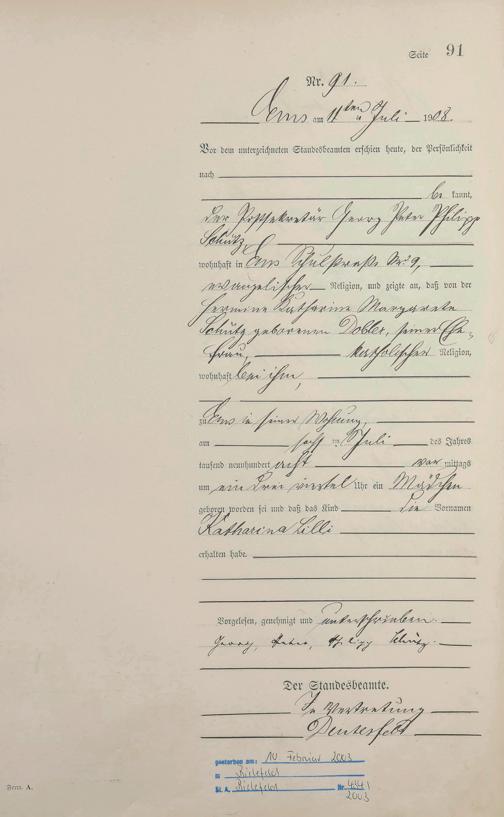 Seite 91
Nr. 91.
Ems am 11ten Juli 1908.
Vor dem unterzeichneten Standesbeamten erschien heute, der Persönlichkeit
nach
be kannt,
der Postsekretär Georg Peter Philipp
Schütz
wohnhaft in Ems Schulstraße Nr. 9,
evangelischer Religion, und zeigte an, daß von der
Hermine Katharine Margarete
Schütz geborenen Dobler, seiner Ehe-
frau, katholischer Religion,
wohnhaft bei ihm,
zu Ems in seiner Wohnung,
am sechsten Juli des Jahres
tausend neunhundert acht vor mittags
um ein drei viertel Uhr ein Mädchen
geboren worden sei und daß das Kind die Vornamen
Katharina Lilli
erhalten habe.
Vorgelesen, genehmigt und unterschrieben.
Georg, Peter, Philipp Schütz.
Der Standesbeamte.
In Vertretung
gestorben am: 10 Februar 2003
in Bielefeld
St. A. Bielefeld Nr.
2003
Form. A.